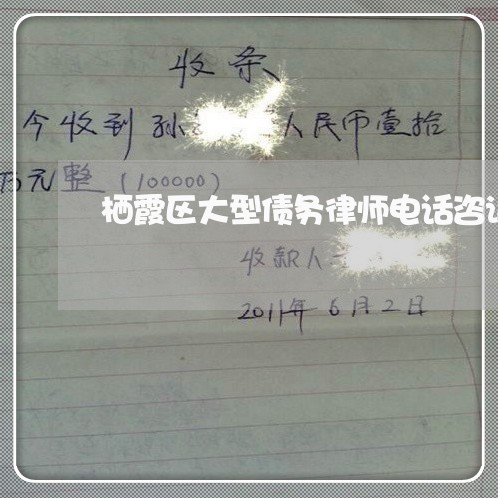 收条
今收到孙 人民币壹拾
万元整（100000）
栖霞区大型债务律师电话咨
收款人
2011年6月2日